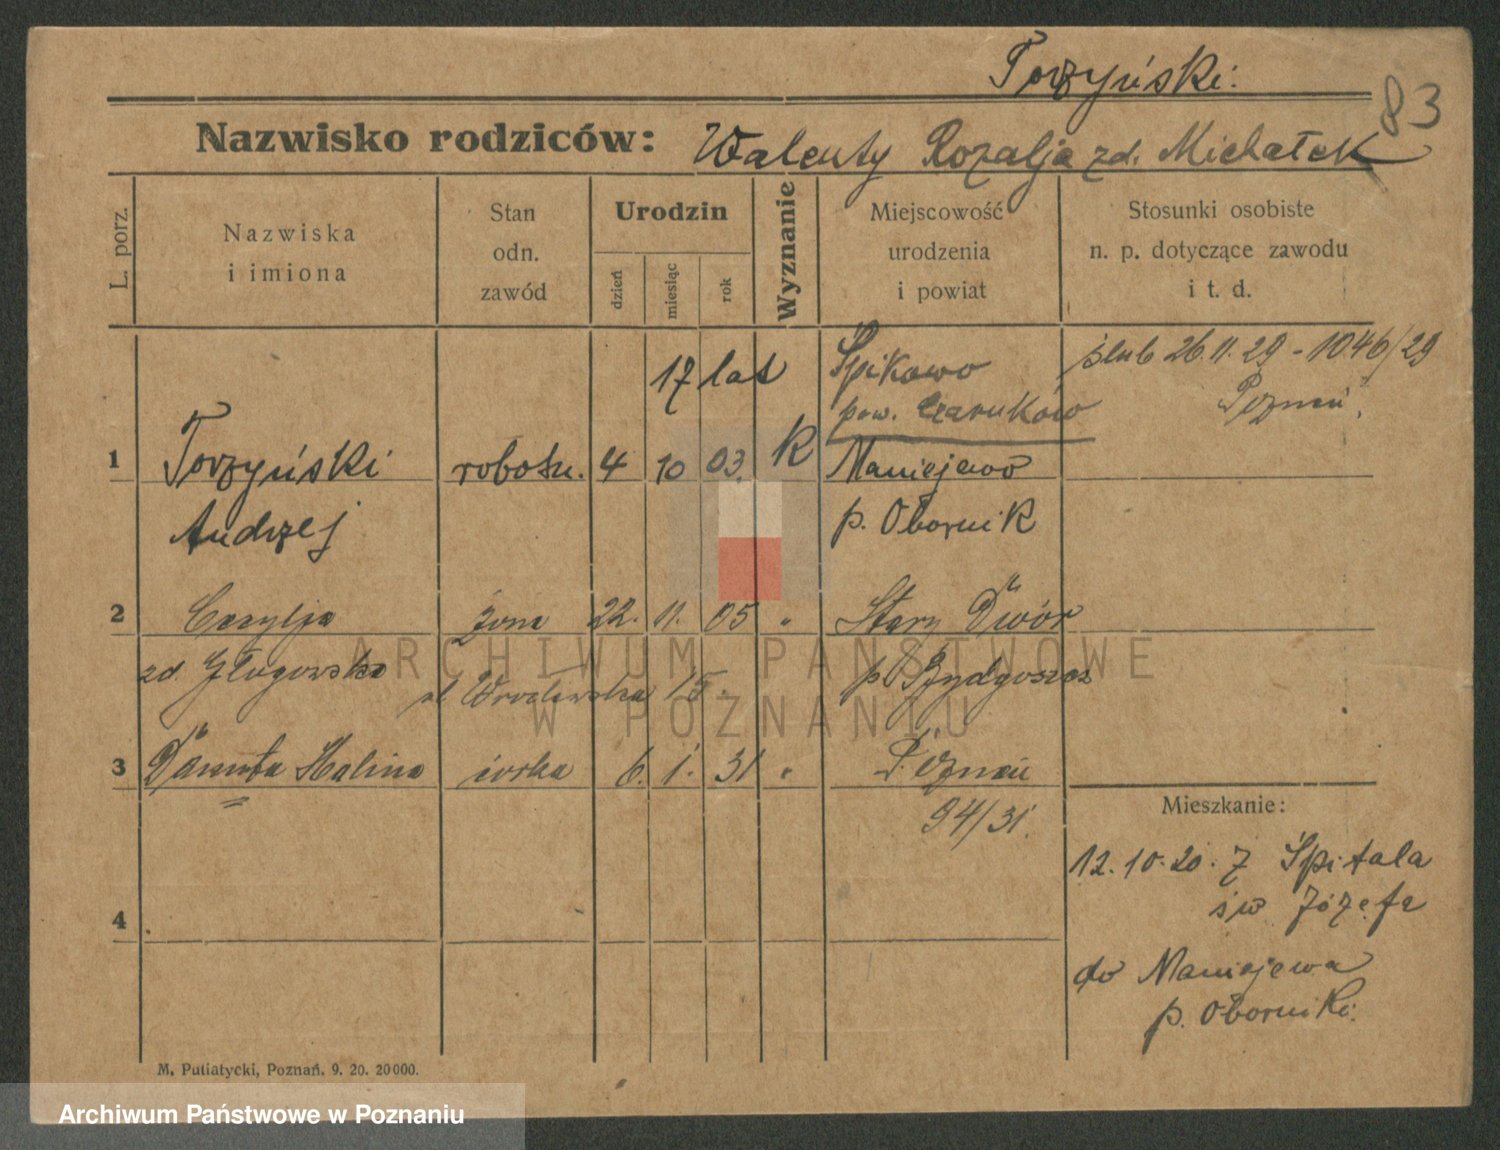 Torzyński.
83
Nazwisko rodziców: Walenty Rozalja zd. Michałek
L. porz.
Nazwiska i imiona
Stan odn. zawód
Urodzin
dzień
miesiąc
rok
Wyznanie
Miejscowość urodzenia i powiat
Stosunki osobiste n. p. dotyczące zawodu i t. d.
17 lat
Śpikowo
pow. Czarnków
ślub 26.11.29 - 1046/29
Poznań.
1 Torzyński robotn. 4 10 03. K Maniejewo
Andrzej p. Obornik
2 Cecylja żona 22. 11. 05 " Stary Dwór
zd. Głogowska p. Bydgoszcz
ul. Wrocławska 15.
3 Danuta Halina córka 6. 1. 31 " Poznań
94/31.
Mieszkanie:
12.10.20. Z Śpitala
św. Józefa
do Maniejewa
p. Oborniki.
4
M. Putiatycki, Poznań. 9. 20. 20000.
ARCHIWUM PAŃSTWOWE
W POZNANIU
Archiwum Państwowe w Poznaniu